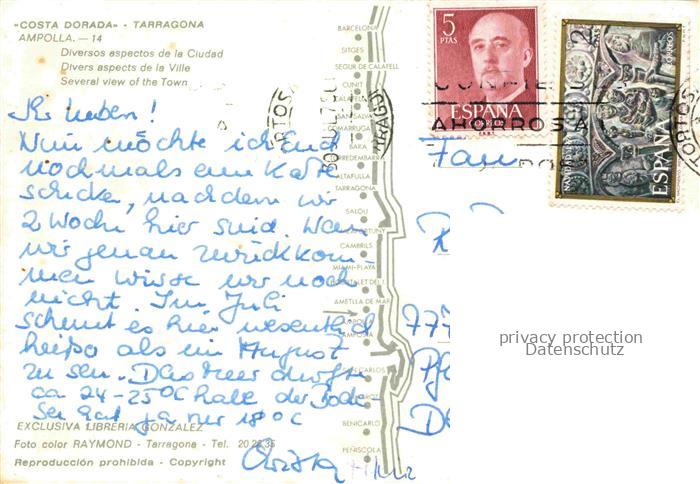 «COSTA DORADA» - TARRAGONA
AMPOLLA. — 14
Diversos aspectos de la Ciudad
Divers aspects de la Ville
Several view of the Town
Ihr Lieben!
Nun möchte ich Euch
nochmals eine Karte
schicke, nachdem wir
2 Woche hier sind. Wan
wir genau zurückkom-
men wisse wir noch
nicht. Im Juli
scheint es hier wesentlich
heißer als im August
zu sein. Das Meer dürfte
ca 24-25°C habe der Bode-
See hat ja nur 18°C
EXCLUSIVA LIBRERIA GONZALEZ
Foto color RAYMOND - Tarragona - Tel. 20 28 35
Reproducción prohibida - Copyright
BARCELONA
SITGES
SEGUR DE CALAFELL
CUNIT
CALAFELL
SAN SALVA
COMARRUGA
BARA
TORREDEMBARRA
ALTAFULLA
TARRAGONA
SALOU
CAMBRILS
MIAMI-PLAYA
HOSPITALET DEL I.
AMETLLA DE MAR
AMPOLLA
AMPOSTA
BENICARLO
PEÑISCOLA
5
PTAS
ESPAÑA
CORREOS
2
PTAS
CORREOS
ESPAÑA
AHORRO
Fam
777
privacy protection
Datenschutz